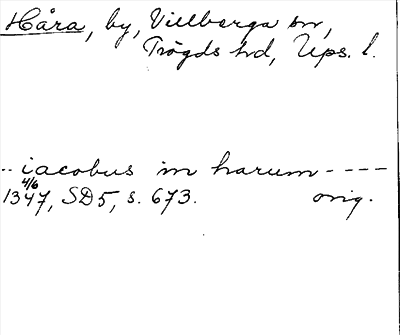 Håra, by, Villberga sn,
Trögds hd, Ups. l.
.. iacobus in harum ----
4/6
1347, SD5, s. 673. orig.